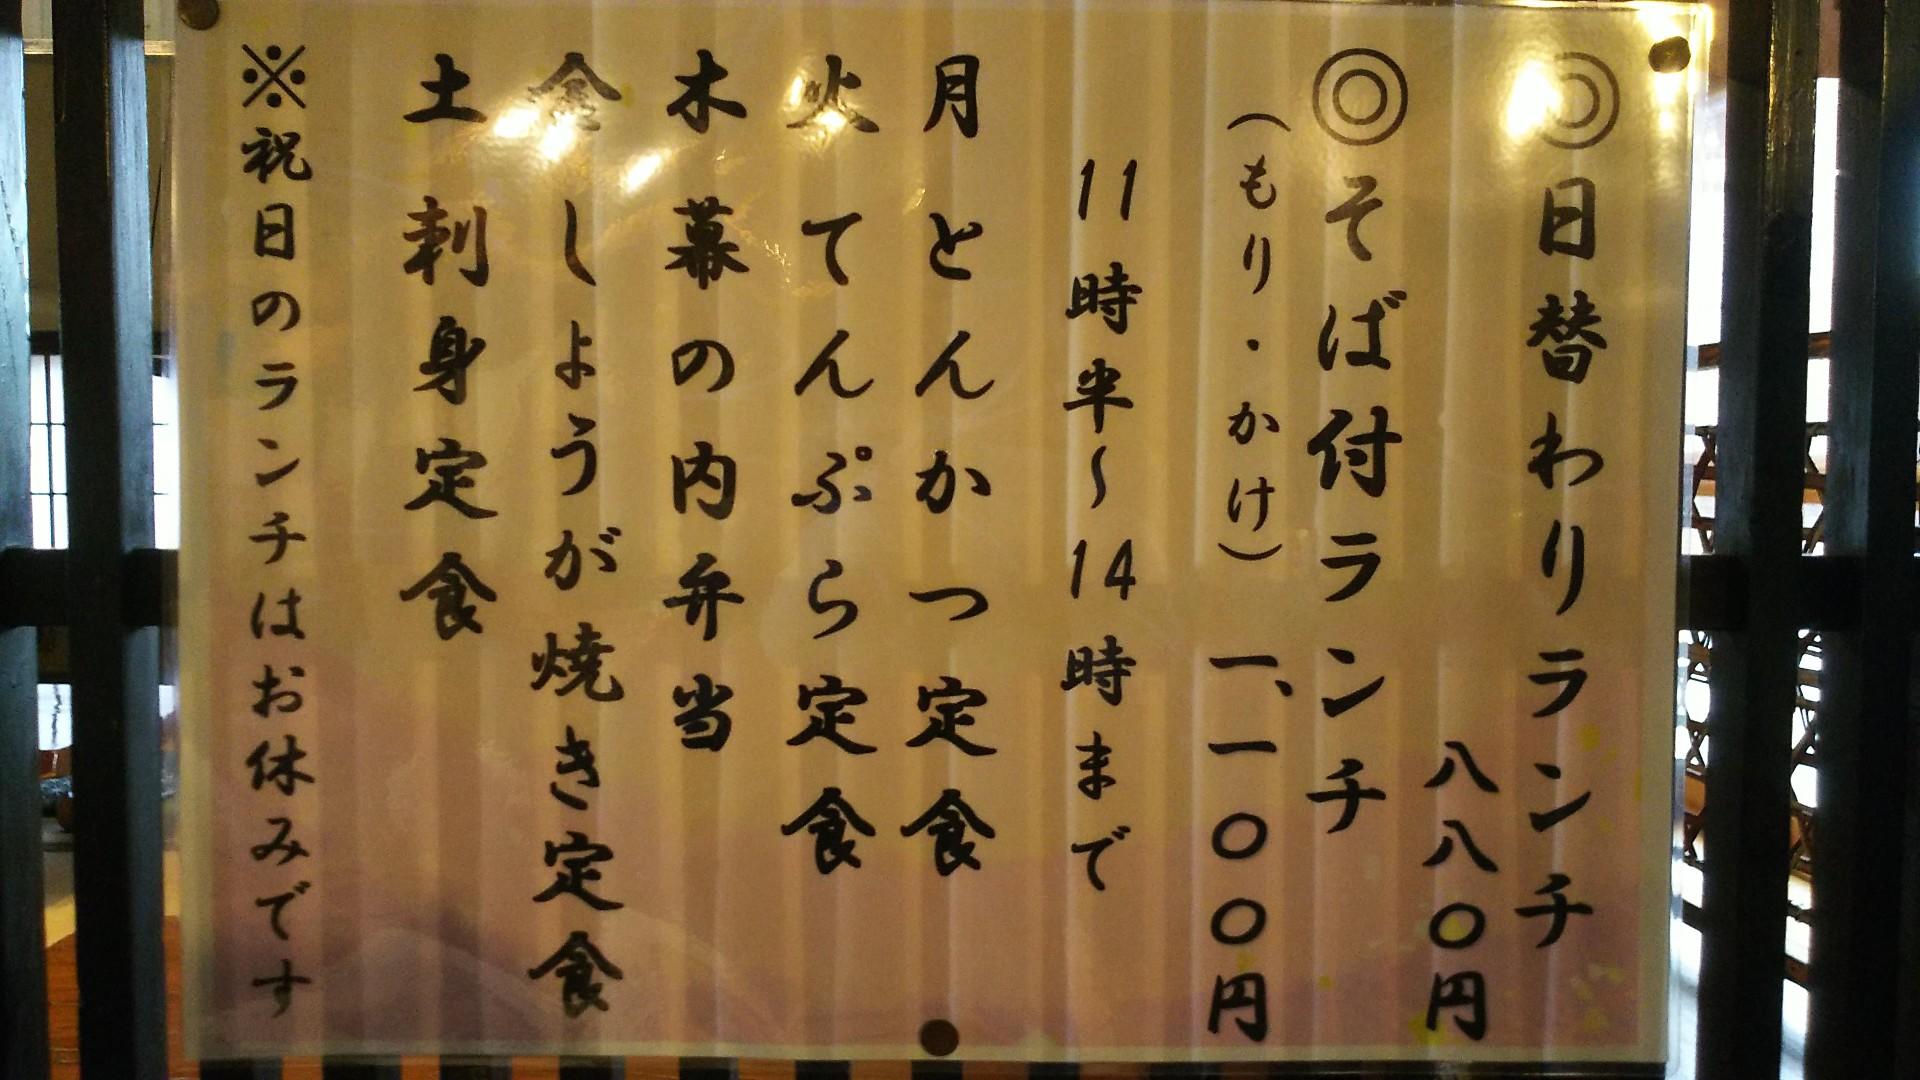 ◎日替わりランチ
八八〇円
◎そば付ランチ
（もり・かけ）一、一〇〇円
11時半～14時まで
月 とんかつ定食
火 てんぷら定食
木 幕の内弁当
金 しょうが焼き定食
土 刺身定食
※祝日のランチはお休みです